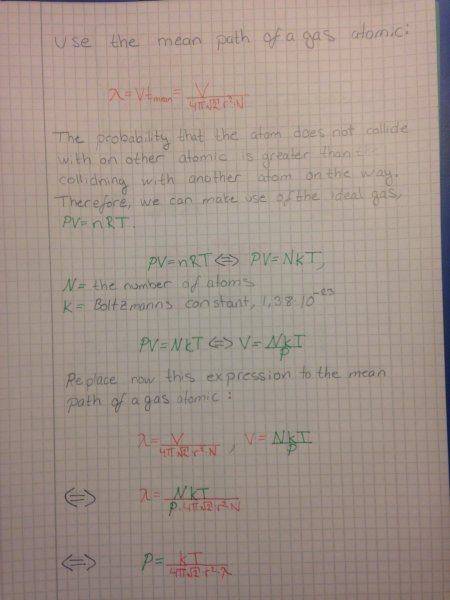 Use the mean path of a gas atomic:
λ = Vtmean = V / 4π√2·r²·N
The probability that the atom does not collide
with on other atomic is greater than the
collidning with another atom on the way.
Therefore, we can make use of the ideal gas,
PV = nRT.
PV = nRT ⇔ PV = NkT,
N = the number of atoms
K = Boltzmanns constant, 1,38·10⁻²³
PV = NkT ⇔ V = NkT / P
Replace now this expression to the mean
path of a gas atomic:
λ = V / 4π√2·r²·N , V = NkT / P
⇔ λ = NkT / P·4π√2·r²·N
⇔ P = kT / 4π√2·r²·λ